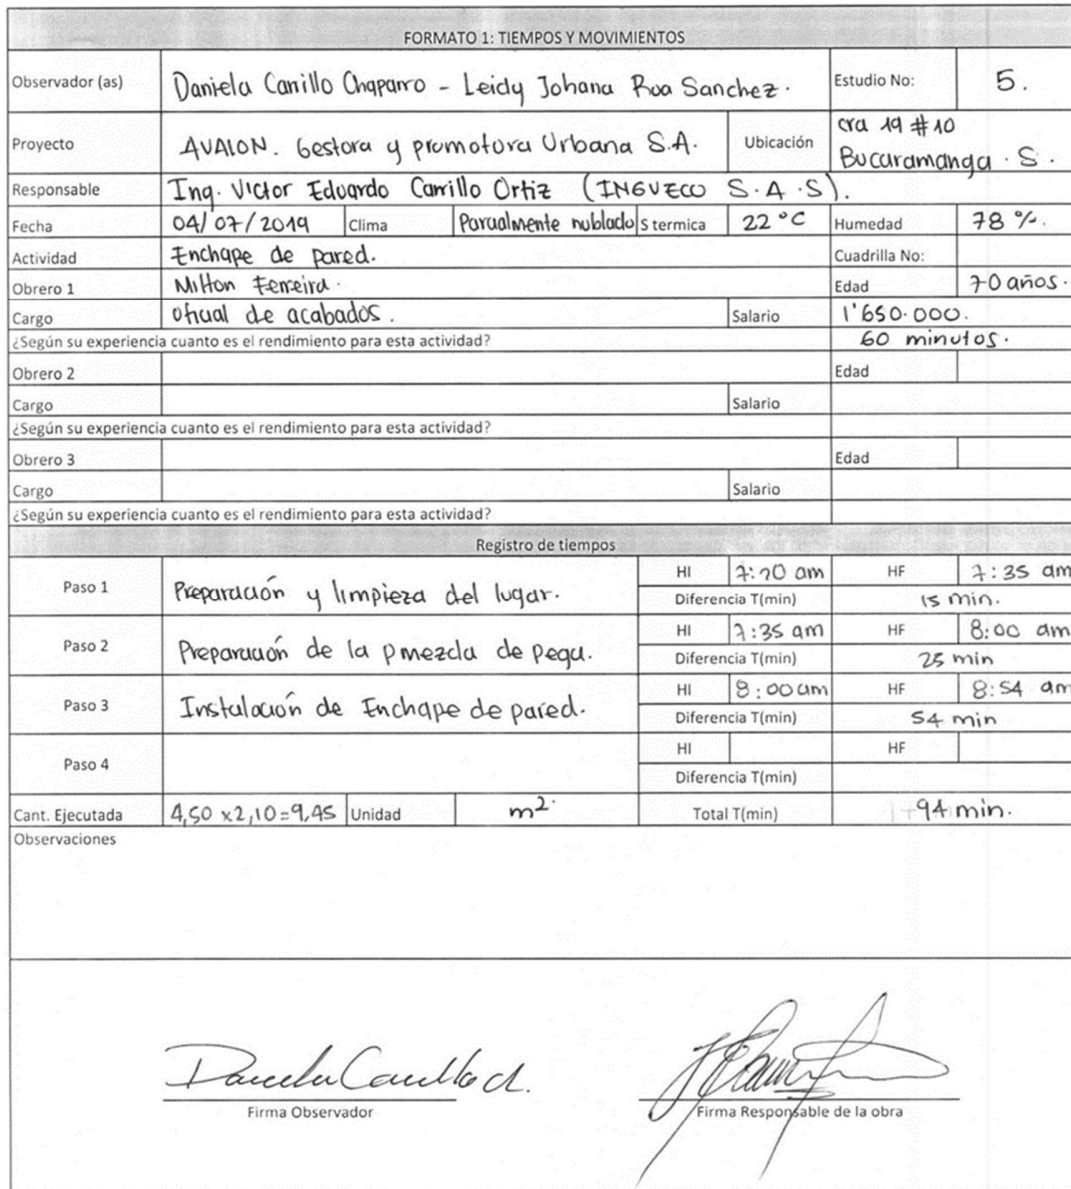 FORMATO 1: TIEMPOS Y MOVIMIENTOS
Observador (as) Daniela Carrillo Chaparro - Leidy Johana Roa Sanchez. Estudio No: 5.
Proyecto AVALON. Gestora y promotora Urbana S.A. Ubicación cra 19 #10
Bucaramanga. S.
Responsable Ing. Victor Eduardo Carrillo Ortiz (INGVECO S.A.S).
Fecha 04/07/2019 Clima Parcialmente nublado S termica 22 °C Humedad 78 %.
Actividad Enchape de pared. Cuadrilla No:
Obrero 1 Milton Ferreira. Edad 70 años.
Cargo Oficial de acabados. Salario 1'650.000.
¿Según su experiencia cuanto es el rendimiento para esta actividad? 60 minutos.
Obrero 2 Edad
Cargo Salario
¿Según su experiencia cuanto es el rendimiento para esta actividad?
Obrero 3 Edad
Cargo Salario
¿Según su experiencia cuanto es el rendimiento para esta actividad?
Registro de tiempos
Paso 1 Preparación y limpieza del lugar. HI 7:20 am HF 7:35 am
Diferencia T(min) 15 min.
Paso 2 Preparación de la pmezcla de pega. HI 7:35 am HF 8:00 am
Diferencia T(min) 25 min
Paso 3 Instalación de Enchape de pared. HI 8:00 am HF 8:54 am
Diferencia T(min) 54 min
Paso 4 HI HF
Diferencia T(min)
Cant. Ejecutada 4,50 x2,10=9,45 Unidad m². Total T(min) 94 min.
Observaciones
Daniela Carrillo ch.
Firma Observador Firma Responsable de la obra